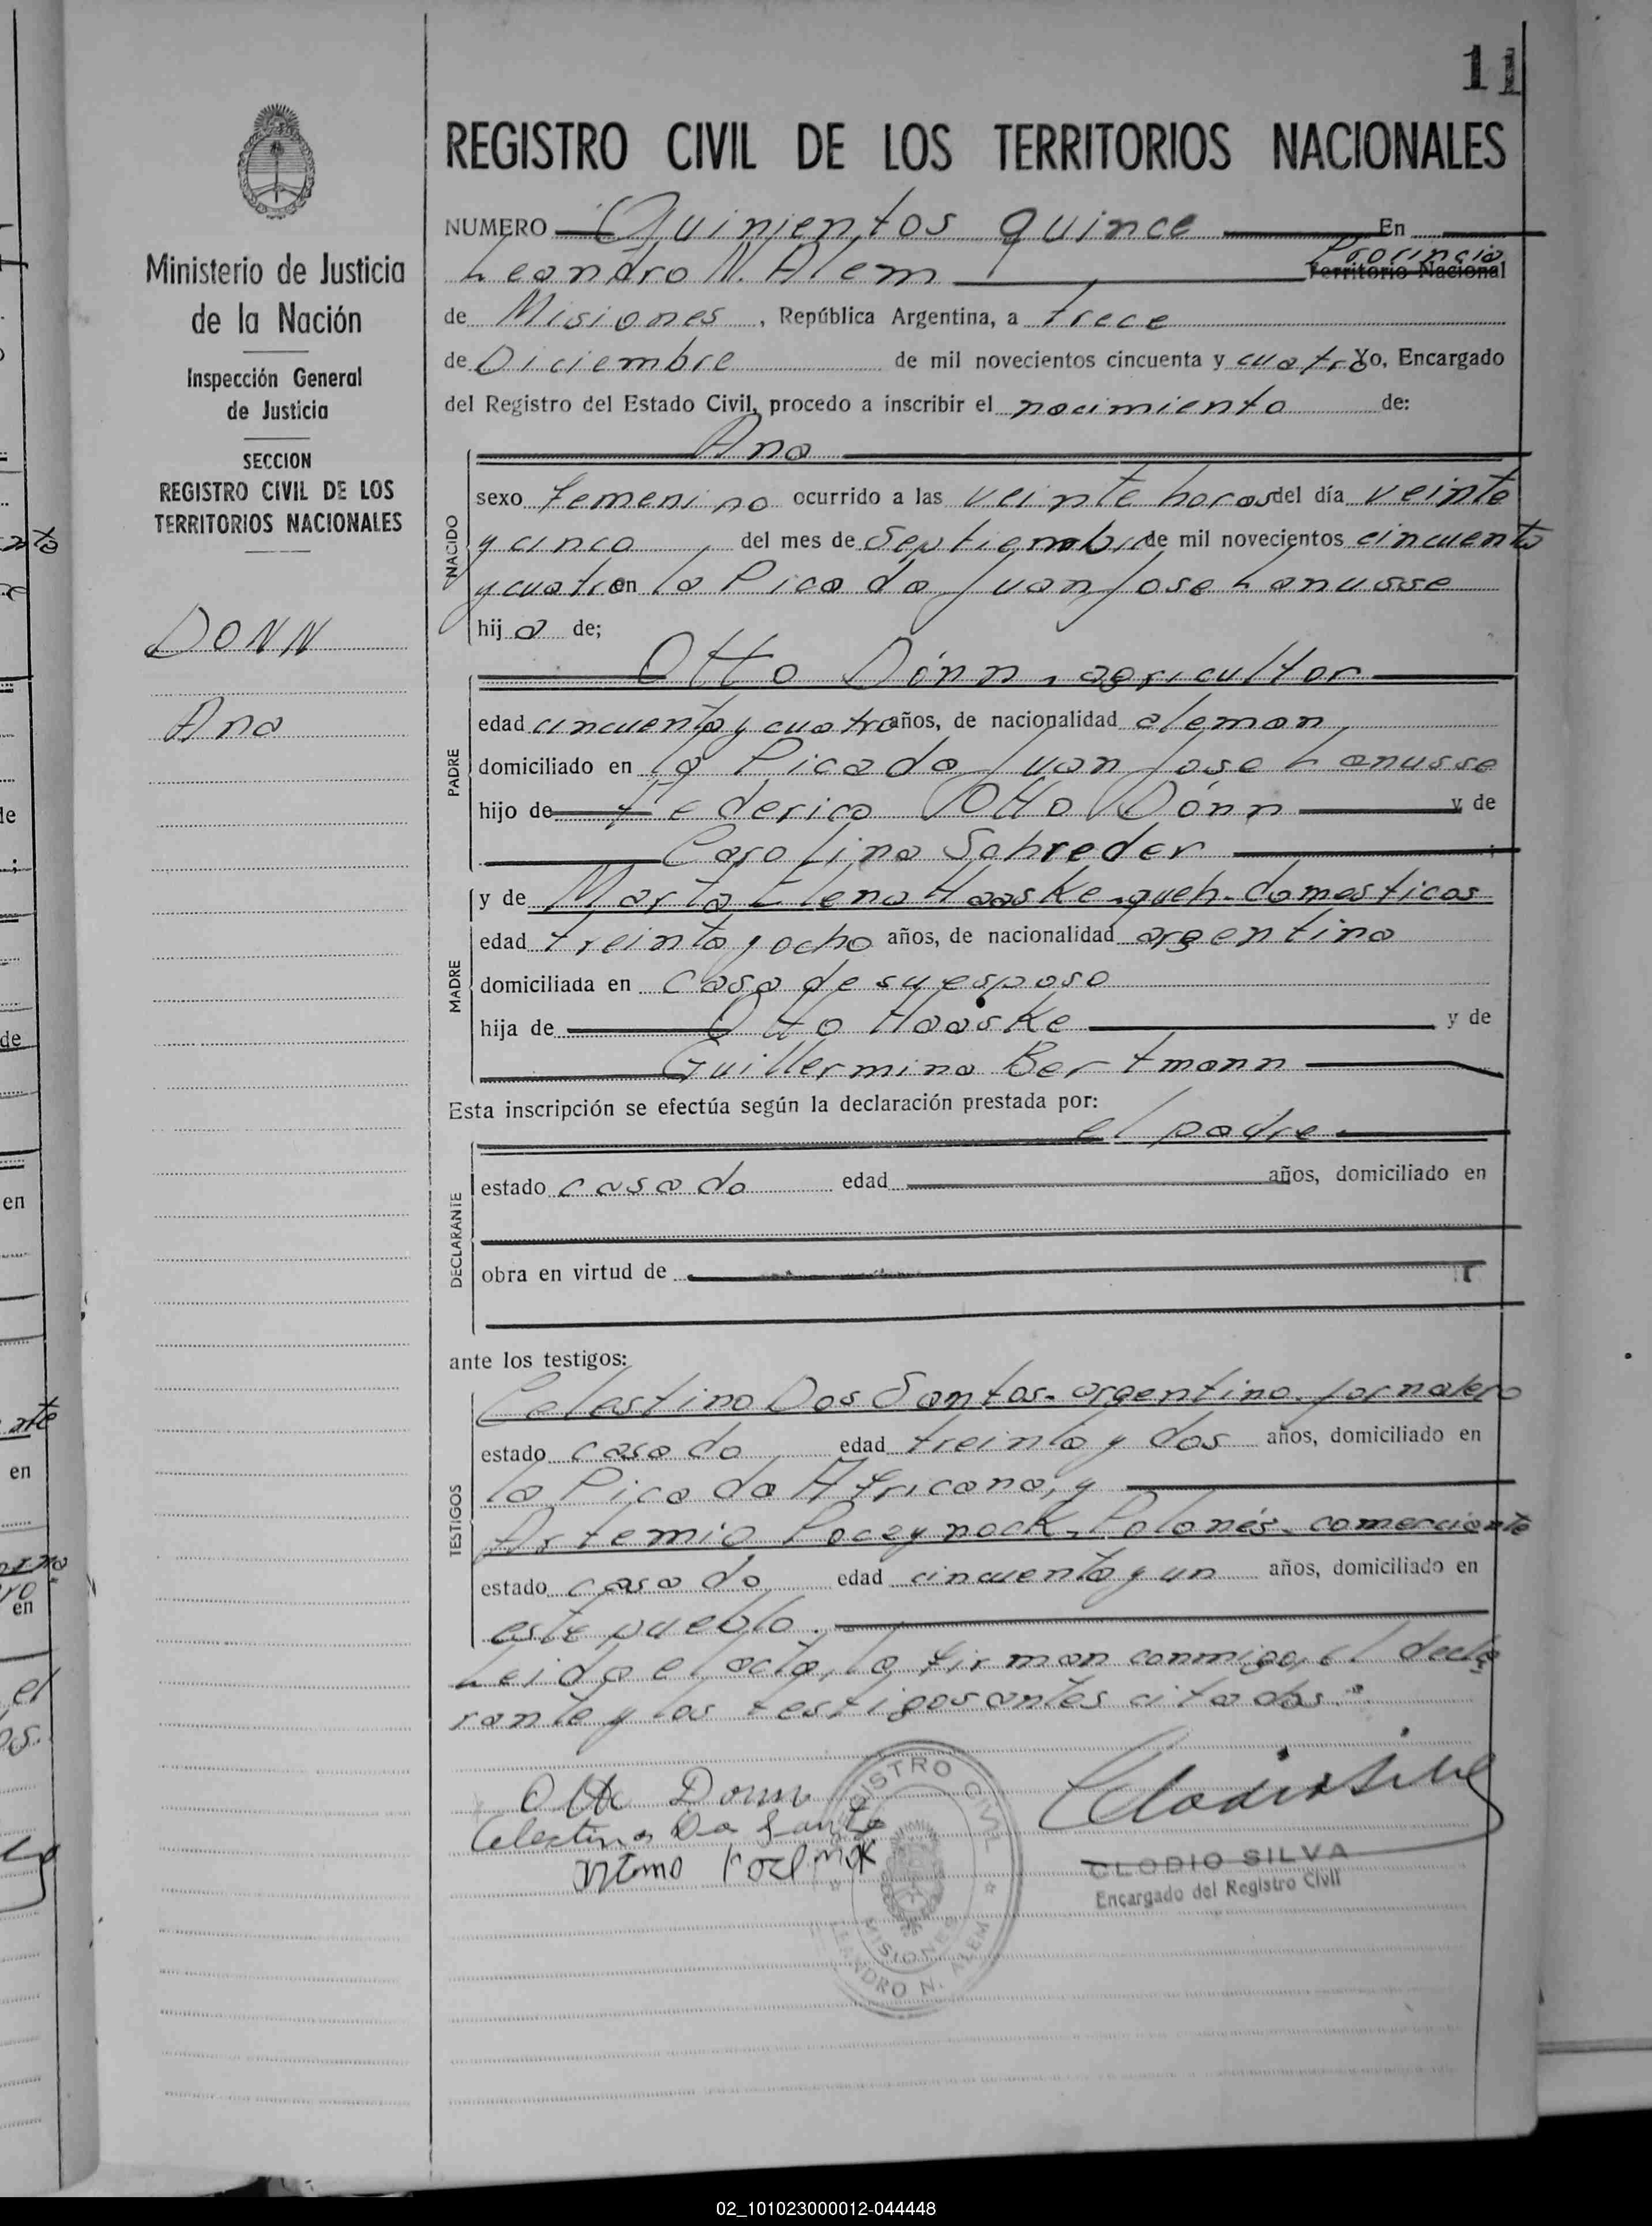 11
REGISTRO CIVIL DE LOS TERRITORIOS NACIONALES
Ministerio de Justicia
de la Nación
Inspección General
de Justicia
SECCION
REGISTRO CIVIL DE LOS
TERRITORIOS NACIONALES
DONN
Ana
NUMERO Quinientos quince En
Leandro N. Alem Provincia Territorio Nacional
de Misiones, República Argentina, a trece
de Diciembre de mil novecientos cincuenta y cuatro Yo, Encargado
del Registro del Estado Civil, procedo a inscribir el nacimiento de:
NACIDO
Ana
sexo femenino ocurrido a las veinte horas del día veinte
y cinco del mes de Septiembre de mil novecientos cincuenta
y cuatro en la Picada Juan Jose Lanusse
hija de;
PADRE
Otto Dónn, agricultor
edad cincuenta y cuatro años, de nacionalidad aleman
domiciliado en la Picada Juan Jose Lanusse
hijo de Federico Otto Dónn y de
Carolina Schreder
MADRE
y de Marta Elena Haaske. queh. domesticos
edad treinta y ocho años, de nacionalidad argentina
domiciliada en casa de su esposo
hija de Otto Haaske y de
Guillermina Bertmann
Esta inscripción se efectúa según la declaración prestada por:
DECLARANTE
el padre
estado casado edad años, domiciliado en
obra en virtud de
ante los testigos:
TESTIGOS
Celestino Dos Santos. argentino. jornalero
estado casado edad treinta y dos años, domiciliado en
la Picada Africana, y
Artemio Poczynock. Polonés. comerciante
estado casado edad cincuenta y un años, domiciliado en
este pueblo.
Leida el acta, la firman conmigo, el decla
rante y los testigos antes citados.
Otto Donn
Celestino Do Santo
REGISTRO CIVIL
MISIONES
LEANDRO N. ALEM
CLODIO SILVA
Encargado del Registro Civil
02_101023000012-044448